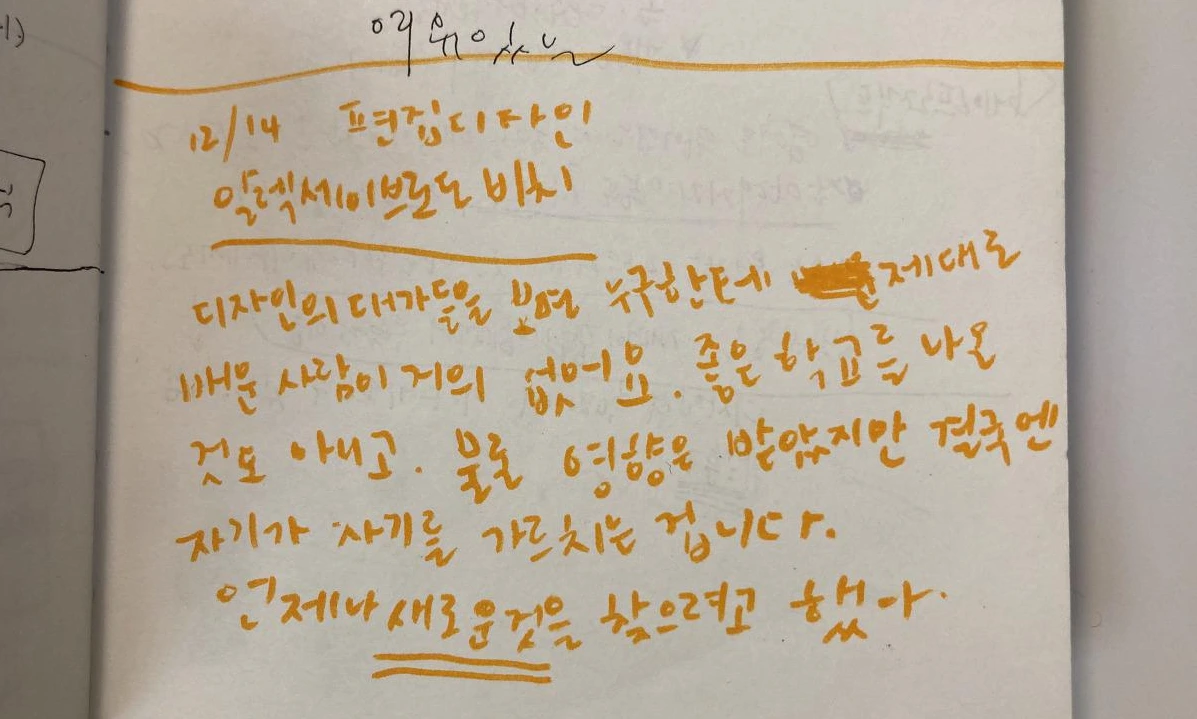 여유있는
12/14 편집디자인
알렉세이브로도비치
디자인의 대가들을 보면 누구한테 제대로
배운 사람이 거의 없어요. 좋은 학교를 나온
것도 아니고. 물론 영향은 받았지만 결국엔
자기가 자기를 가르치는 겁니다.
언제나 새로운것을 찾으려고 했다.